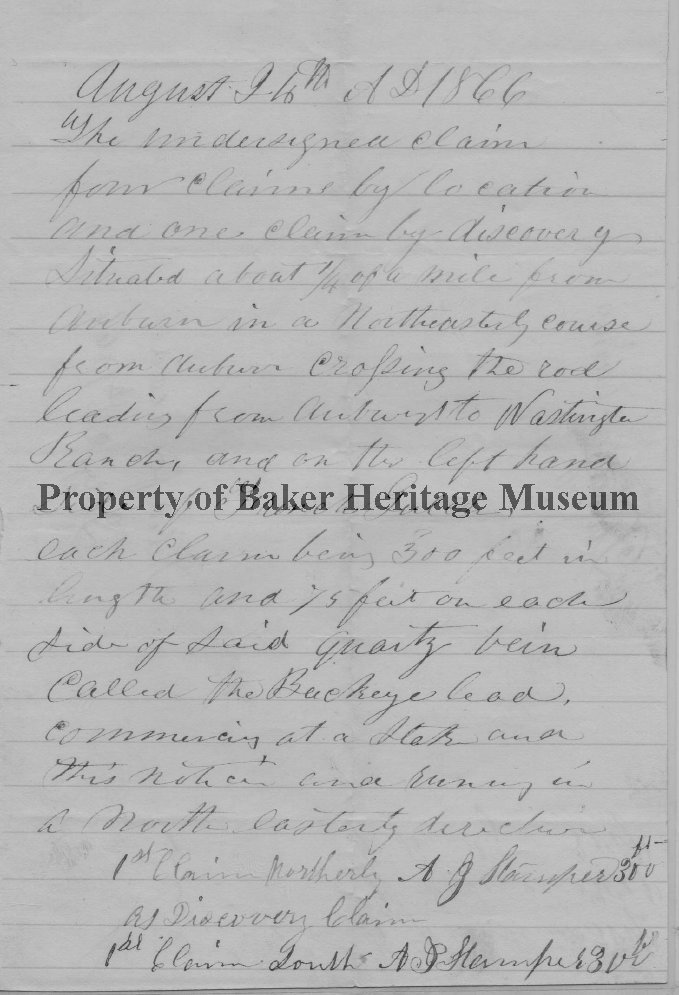 August 26th A D 1866
We the undersigned claim
four claims by location
and one claim by discovery
Situated about 1/4 of a mile from
Auburn in a Northeasterly course
from Auburn crossing the rod
leading from Auburn to
Ranch, and on the left hand
Property of Baker Heritage Museum
each claim being 300 feet in
length and 75 feet on each
side of said quartz vein
Called the Buckeye lead,
commencing at a Stake and
this notice and runing in
a North easterly direction
1st Claim Northerly A J Stamper 300 ft
as Discovery Claim
1st Claim South A J Stamper 300 ft